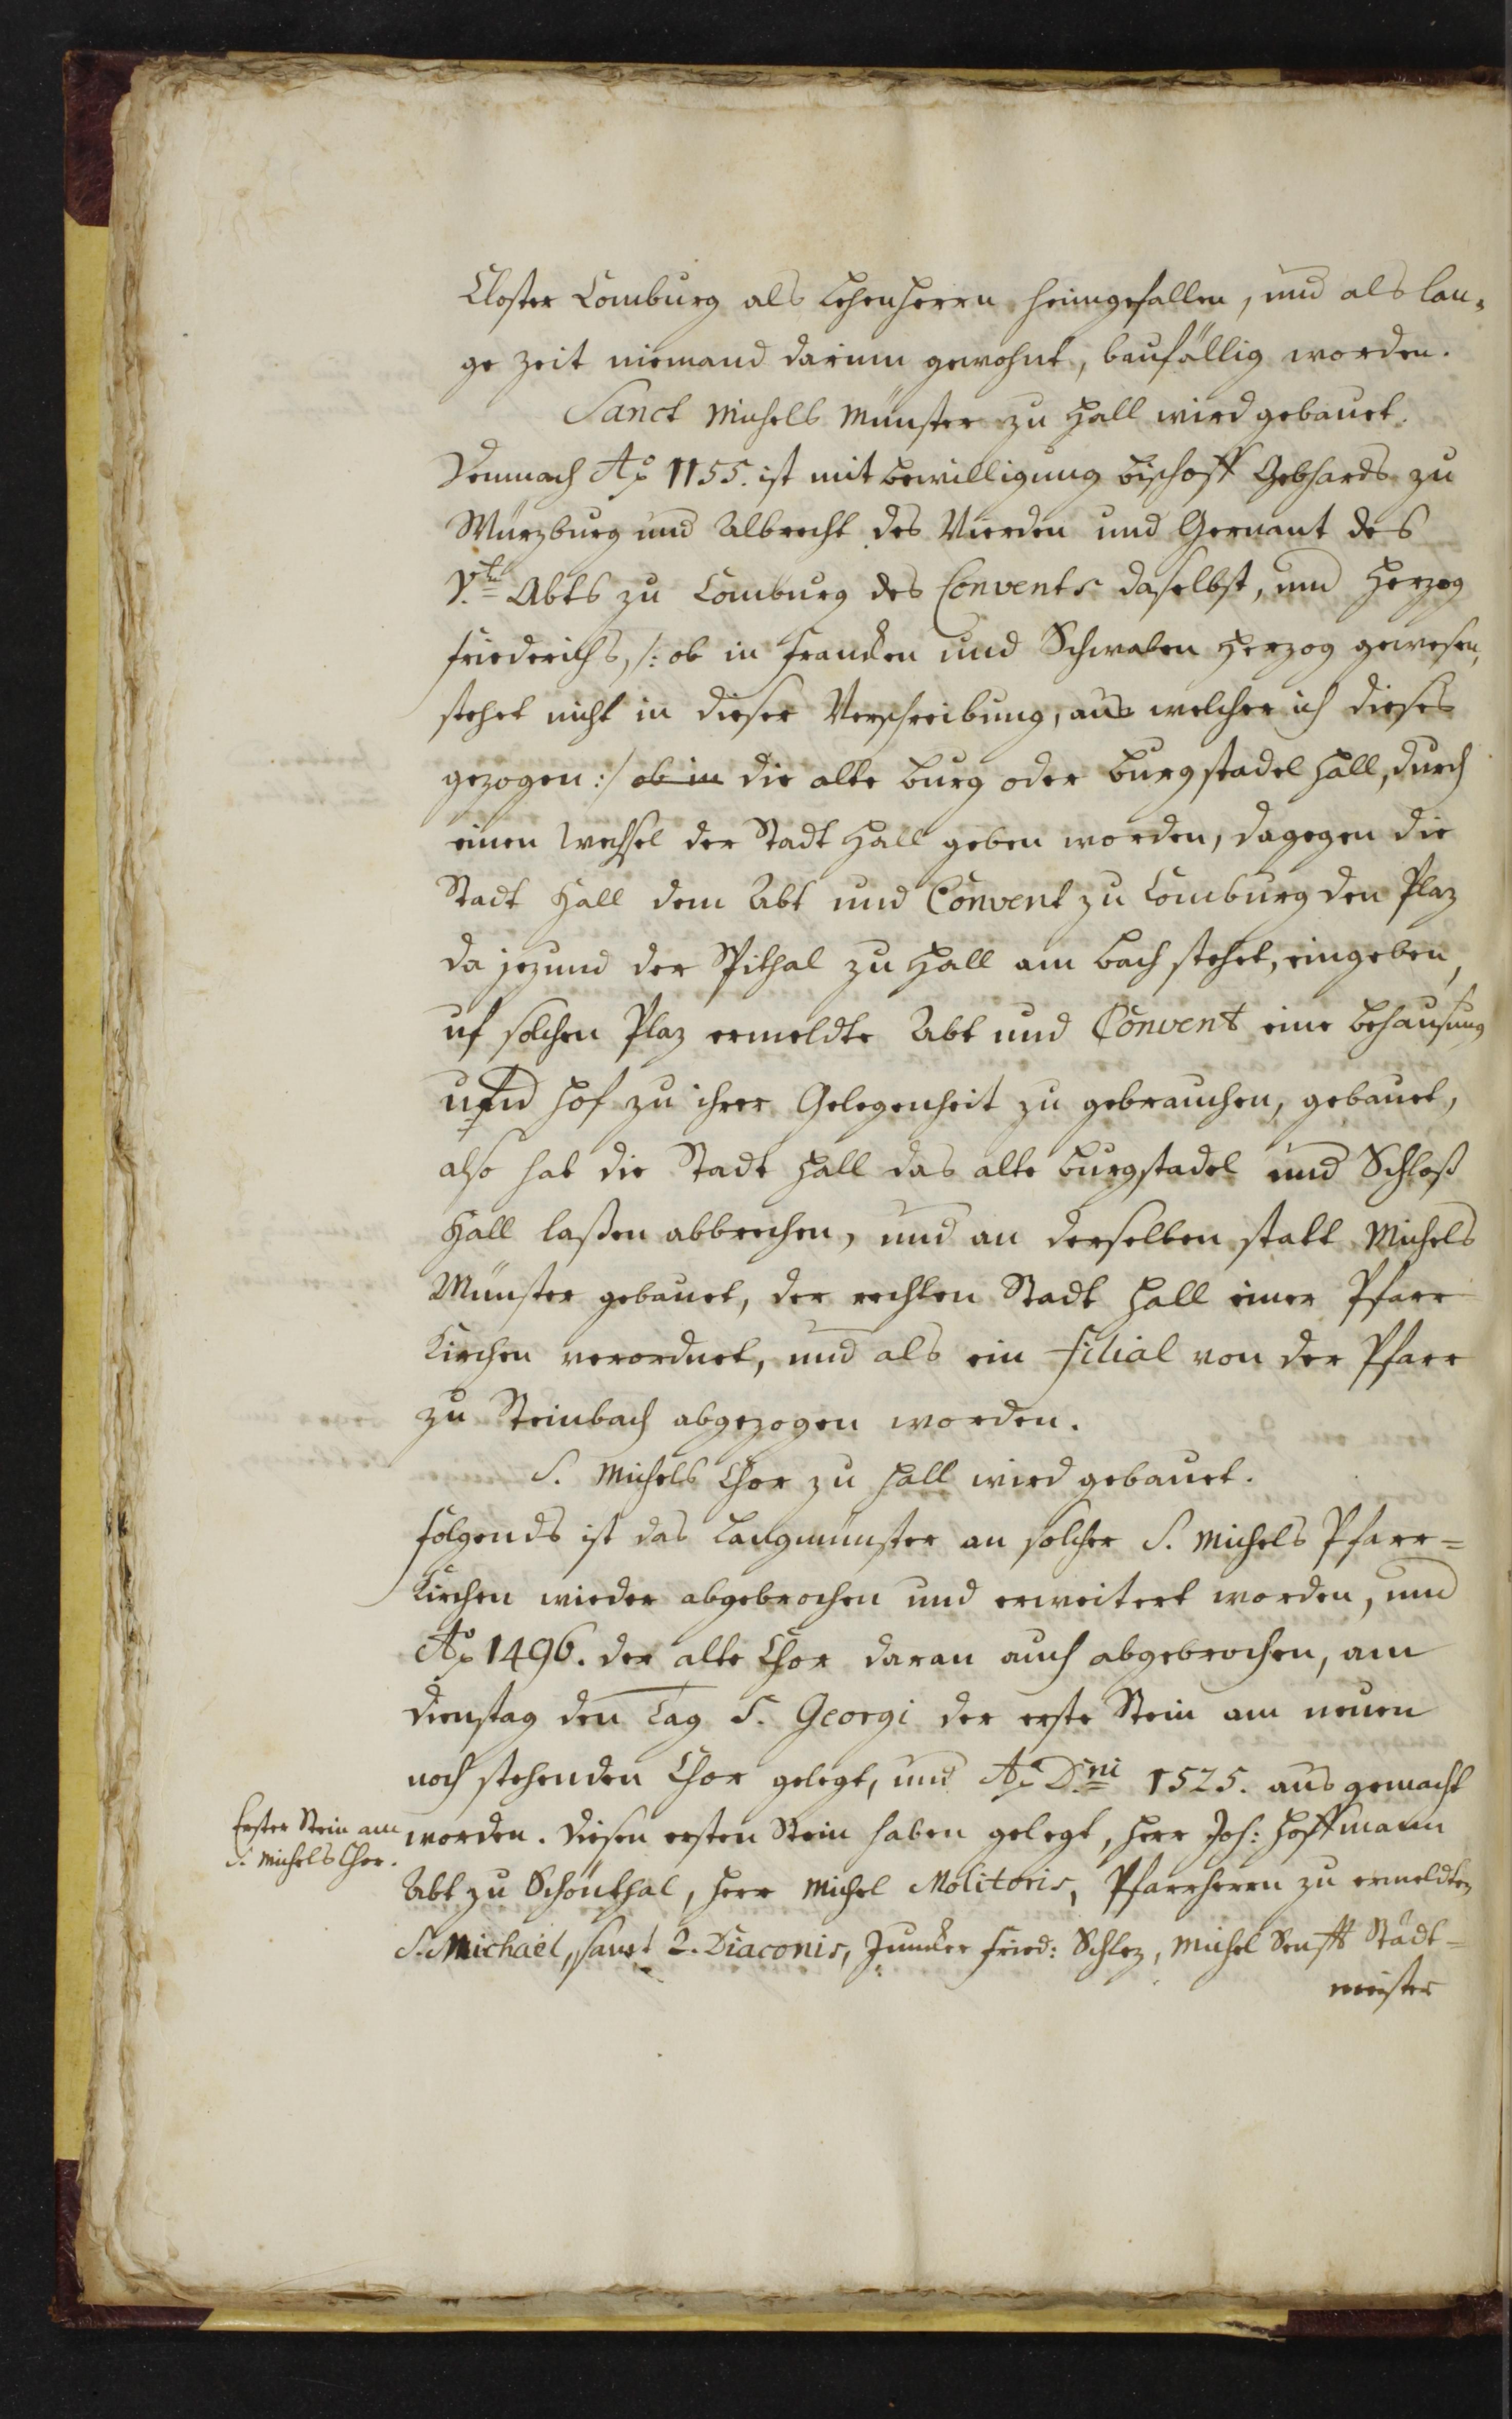 Closter Comburg als Lehenherrn heimgefallen, und als lan-
ge Zeit niemand darinn gewohnt, baufällig worden.
Sanct Michels Münster zu Hall wird gebauet.
Demnach Ao 1155. ist mit bewilligung Bischoff Gebhards zu
Würzburg und Albrecht des Vierden und Gernant des
V.ten Abts zu Comburg des Convents daselbst, und Herzog
Friederichs, /: ob in Francken und Schwaben Herzog gewesen,
stehet nicht in dieser Verschreibung, aus welcher ich dieses
gezogen :/ ob in die alte Burg oder Burgstadel Hall, durch
einen Wechsel der Stadt Hall geben worden, dagegen die
Stadt Hall dem Abt und Convent zu Comburg den Plaz
da jezund der Spithal zu Hall am Bach stehet, eingeben,
uf solchen Plaz ermeldte Abt und Convent eine Behausung
und Hof zu ihrer Gelegenheit zu gebrauchen, gebauet,
also hat die Stadt Hall das alte Burgstadel und Schloß
Hall laßen abbrechen, und an derselben statt Michels
Münster gebauet, der rechten Stadt Hall einer Pfarr
Kirchen verordnet, und als ein Filial von der Pfarr
zu Steinbach abgezogen worden.
S. Michels Chor zu Hall wird gebauet.
Folgends ist das Langmünster an solcher S. Michels Pfarr=
Kirchen wieder abgebrochen und erweitert worden, und
Ao 1496. der alte Chor daran auch abgebrochen, am
Dienstag den Tag S. Georgi der erste Stein am neuen
noch stehenden Chor gelegt, und Ao Dni 1525. ausgemacht
Erster Stein am
S. Michels Chor.
worden. Diesen ersten Stein haben gelegt, Herr Joh: Hoffmann
Abt zu Schönthal, Herr Michel Molitoris, Pfarrherrn zu ermeldten
S. Michaël, samt 2. Diaconis, Juncker Fried: Schlez, Michel Senfft Städt=
meister